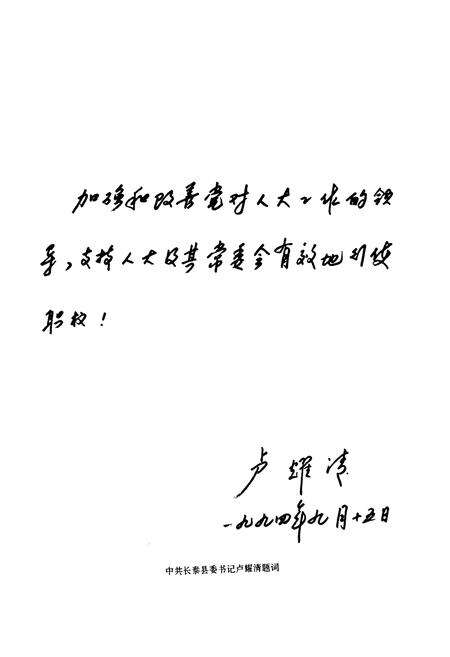 加强和改善党对人大工作的领
导，支持人大及其常委会有效地行使
职权！
卢耀清
一九九四年九月十五日
中共长泰县委书记卢耀清题词